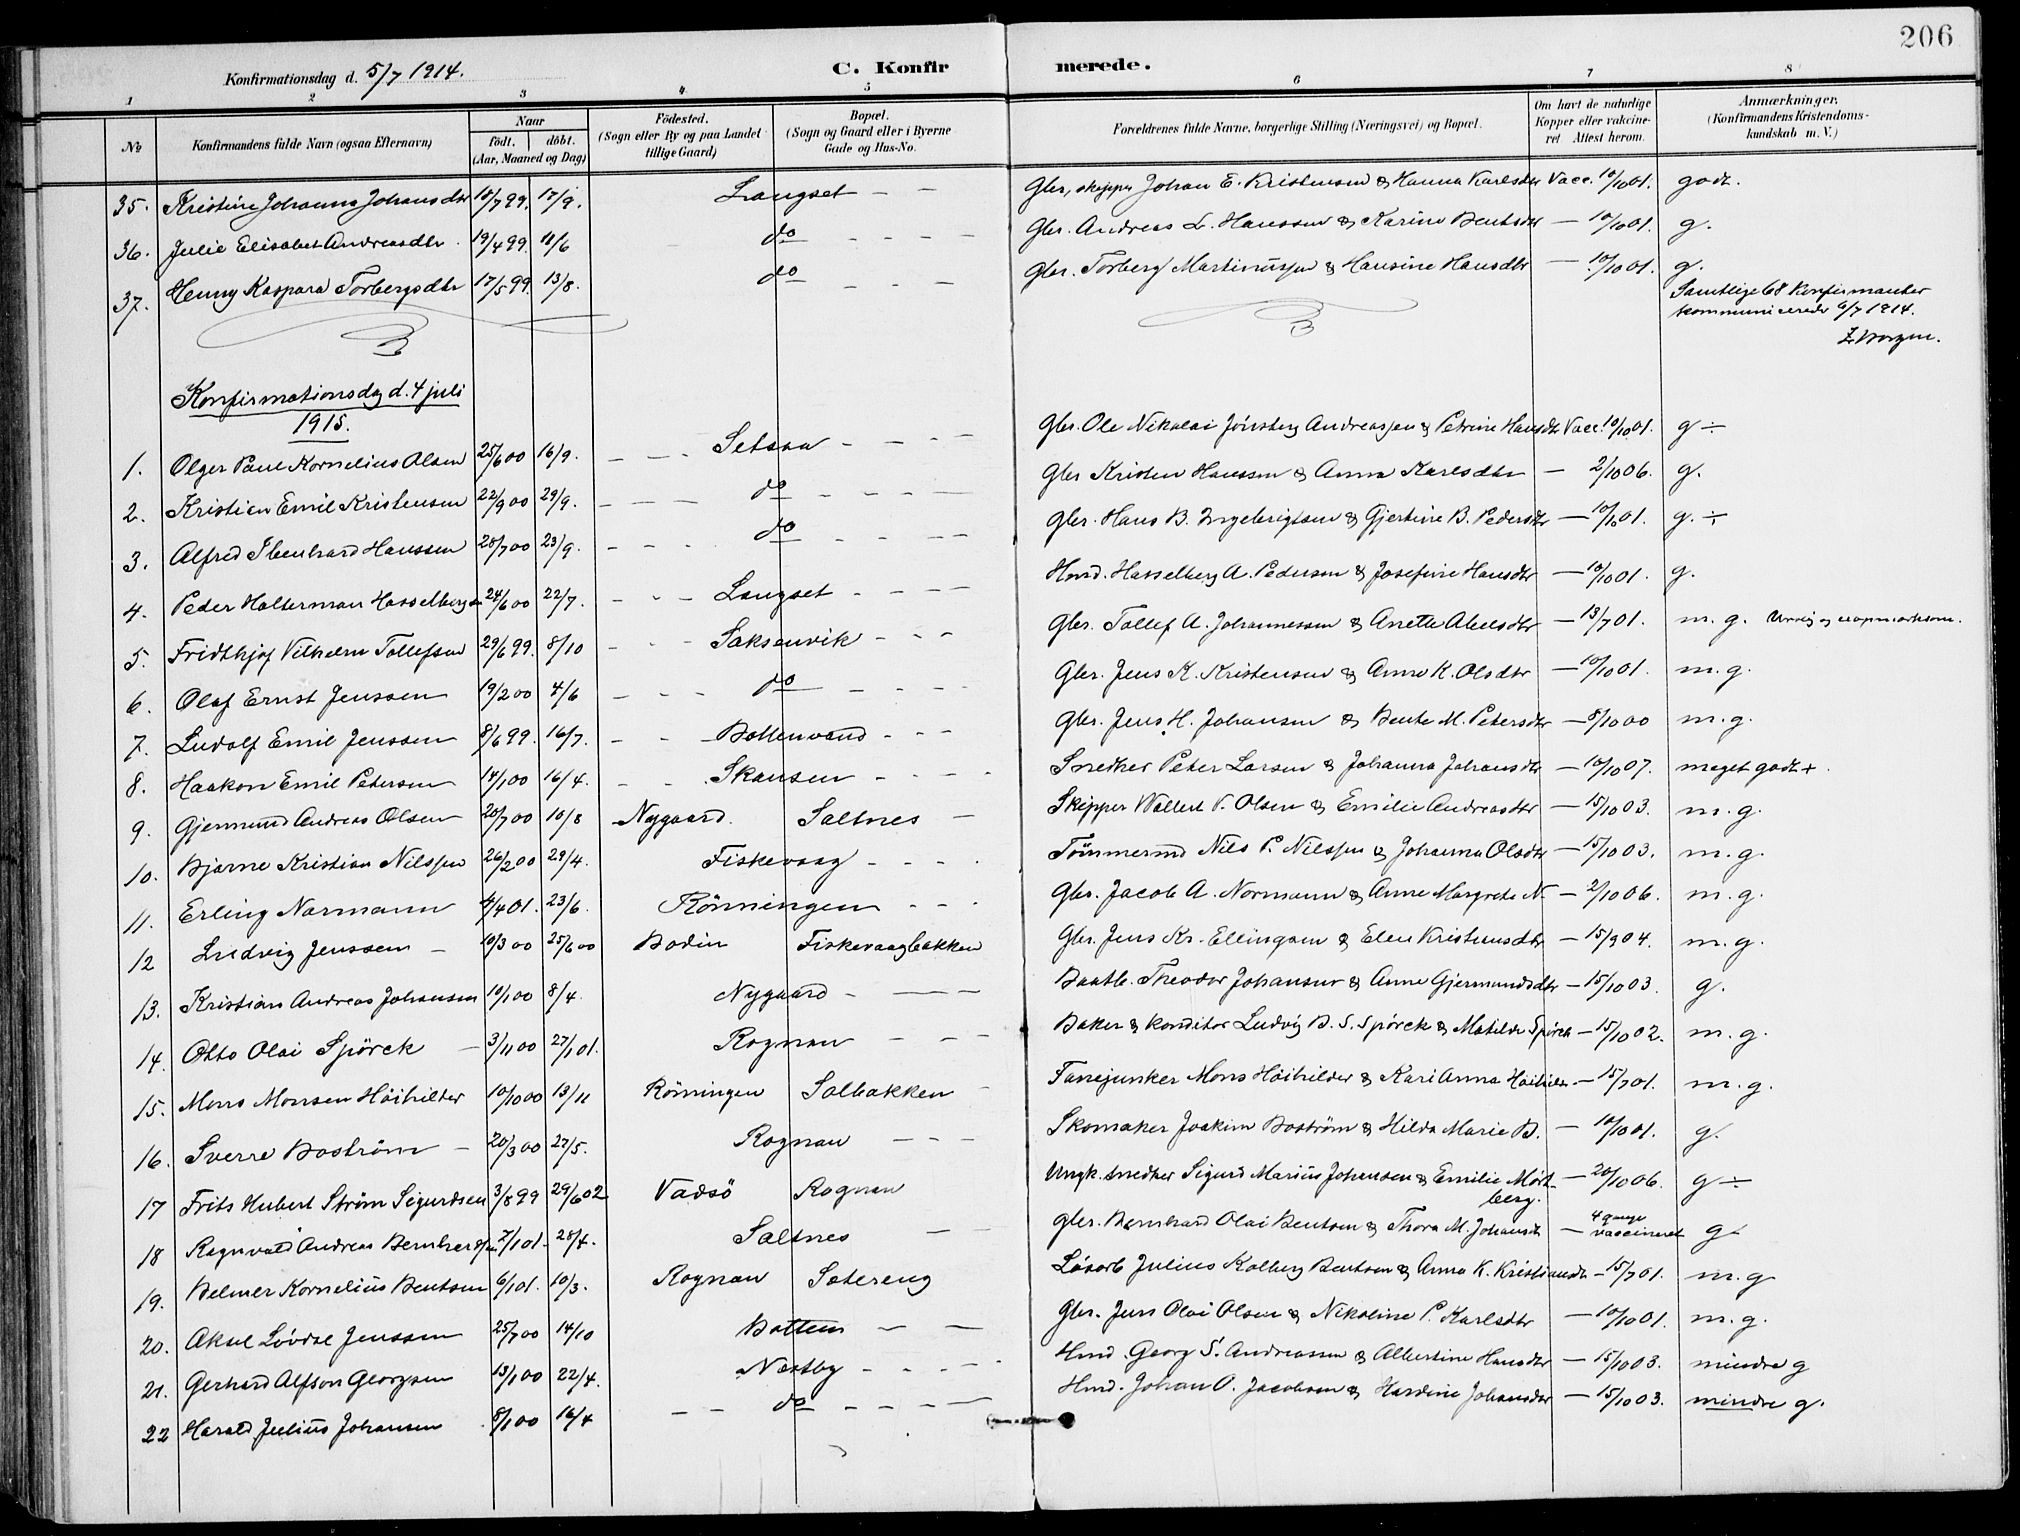 206
Konfirmationsdag d. 5/7 1914. C. Konfirmerede.
1 2 3 4 5 6 7 8
No Konfirmandens fulde Navn (ogsaa Efternavn) Naar født. døbt. (Aar, Maaned og Dag) Fødested. (Sogn eller By og paa Landet tillige Gaard) Bopæl. (Sogn og Gaard eller i Byerne Gade og Hus-No. Forældrenes fulde Navne, borgerlige Stilling (Næringsvei) og Bopæl. Om havt de naturlige Kopper eller vakcineret Attest herom. Anmærkninger. (Konfirmandens Kristendomskundskab m. V.)
35. Kristine Johanna Johansdtr 18/7 99. 17/9. Langset – – Gbr, skipper Johan E. Kristensen & Hanna Karlsdtr Vacc. 10/10 01. godt.
36. Julie Elisabet Andreasdtr. 19/4 99. 11/6 do – – – Gbr. Andreas L. Hanssen & Karine Bentsdtr – 10/10 01. g.
37. Henny Kaspara Torbergsdtr 17/5 99. 13/8. do – – – Gbr. Torberg Martinussen & Hansine Hansdtr – 10/10 01. g.
Samtlige 68 Konfirmanter
kommunicerede 6/7 1914.
Konfirmationsdag d. 4 juli
1915.
1. Olger Paul Kornelius Olsen 25/6 00 16/9. – – – Setsaa – – – Gbr. Ole Nikolai Jönsberg Andreassen & Petrine Hansdtr Vacc. 10/10 01. g ÷
2. Kristian Emil Kristensen 22/9 00 29/9. – – – do – – – Gbr Kristen Hanssen & Anna Karlsdtr – 2/10 06. g.
3. Alfred Ibenhard Hanssen 28/7 00 23/9. – – – do – – – Gbr. Hans B. Ingebrigtsen & Gjertine B. Pedersdtr – 10/10 01. g. ÷
4. Peder Halterman Hasselbergsen 24/6 00 22/7. – – – Langset – – – Hmd. Hasselberg A. Pedersen & Josefine Hansdtr – 10/10 01. g.
5. Fridthjof Vilhelm Tollefsen 29/6 99. 8/10 – – – Saksenvik – – – Gbr. Tollef A. Johannessen & Anette Abelsdtr – 13/7 01. m. g. Urolig og uopmærksom.
6. Olaf Ernst Jenssen 19/2 00 4/6 – – – do – – – Gbr. Jens K. Kristensen & Anne K. Olsdtr – 10/10 01. m. g.
7. Ludolf Emil Jenssen 8/6 99. 16/7. – – Bottenvand – – – Gbr. Jens H. Johansen & Bente M. Petersdtr – 8/10 00 m. g.
8. Haakon Emil Petersen 14/1 00 16/4. – – Skansen – – – Snedker Peter Larsen & Johanna Johansdtr – 10/10 07. meget godt +
9. Gjermund Andreas Olsen 20/7 00 10/8 Nygaard. Saltnes – Skipper Vollert V. Olsen & Emilie Andreasdtr – 15/10 03. m. g.
10. Bjarne Kristian Nilssen 26/2 00 29/4. Fiskevaag – – – Tömmermd Nils P. Nilssen & Johanna Olsdtr – 15/10 03. m. g.
11. Erling Normann 4/4 01. 23/6. Rönningen – – – Gbr. Jacob A. Normann & Anne Margrete N. – 2/10 06. m. g.
12 Ludvig Jenssen – 10/3 00 25/6 00 Bodin Fiskevaagbakken Gbr. Jens Kr. Ellingsen & Elen Kristensdtr – 15/9 04. m. g.
13. Kristian Andreas Johansen 10/1 00 8/4. Nygaard – – – Baatb. Theodor Johansen & Anne Gjermundsdtr – 15/10 03. g.
14. Otto Olai Spörck – 3/11 00 27/1 01. Rognan – – – Baker & konditor Ludvig B. S. Spörck & Matilde Spörck – 15/10 02. m. g.
15. Mons Monsen Höihilder 10/10 00 13/11 Rönningen Solbakken – Fanejunker Mons Höihilder & Kari Anna Höihilder – 15/7 01. m. g.
16. Sverre Boström – 20/3 00 27/5. Rognan – – – Skomaker Joakim Boström & Hilda Marie B. – 10/10 01. g.
17 Frits Hubert Ström Sigurdsen 3/8 99 29/6 02 Vadsö Rognan Ungk. snedker Sigurd Marius Johansen & Emilie Mörkberg. – 20/10 06. g ÷
18 Ragnvald Andreas Bernhardsen 2/1 01. 28/4. Saltnes – – Gbr. Bernhard Olai Bentsen & Thora M. Johansdtr – 4 gange vaccineret g
19. Belmer Kornelius Bentsen 6/1 01. 10/3. Rognan Sætereng Lösarb Julius Kolberg Bentsen & Anna K. Kristiansdtr – 15/7 01. m. g
20. Aksel Lövdal Jenssen 25/7 00 14/10 Botten – – Gbr. Jens Olai Olsen & Nikoline P. Karlsdtr – 10/10 01. m. g.
21. Gerhard Alfson Georgsen 13/1 00 22/4. Næstby – – – – Hmd. Georg S. Andreassen & Albertine Hansdtr – 15/10 03. mindre g
22 Harald Julius Johansen 8/1 00 16/4 – – do – – – Hmd. Johan O. Jacobsen & Hardine Johansdtr – 15/10 03. mindre g.